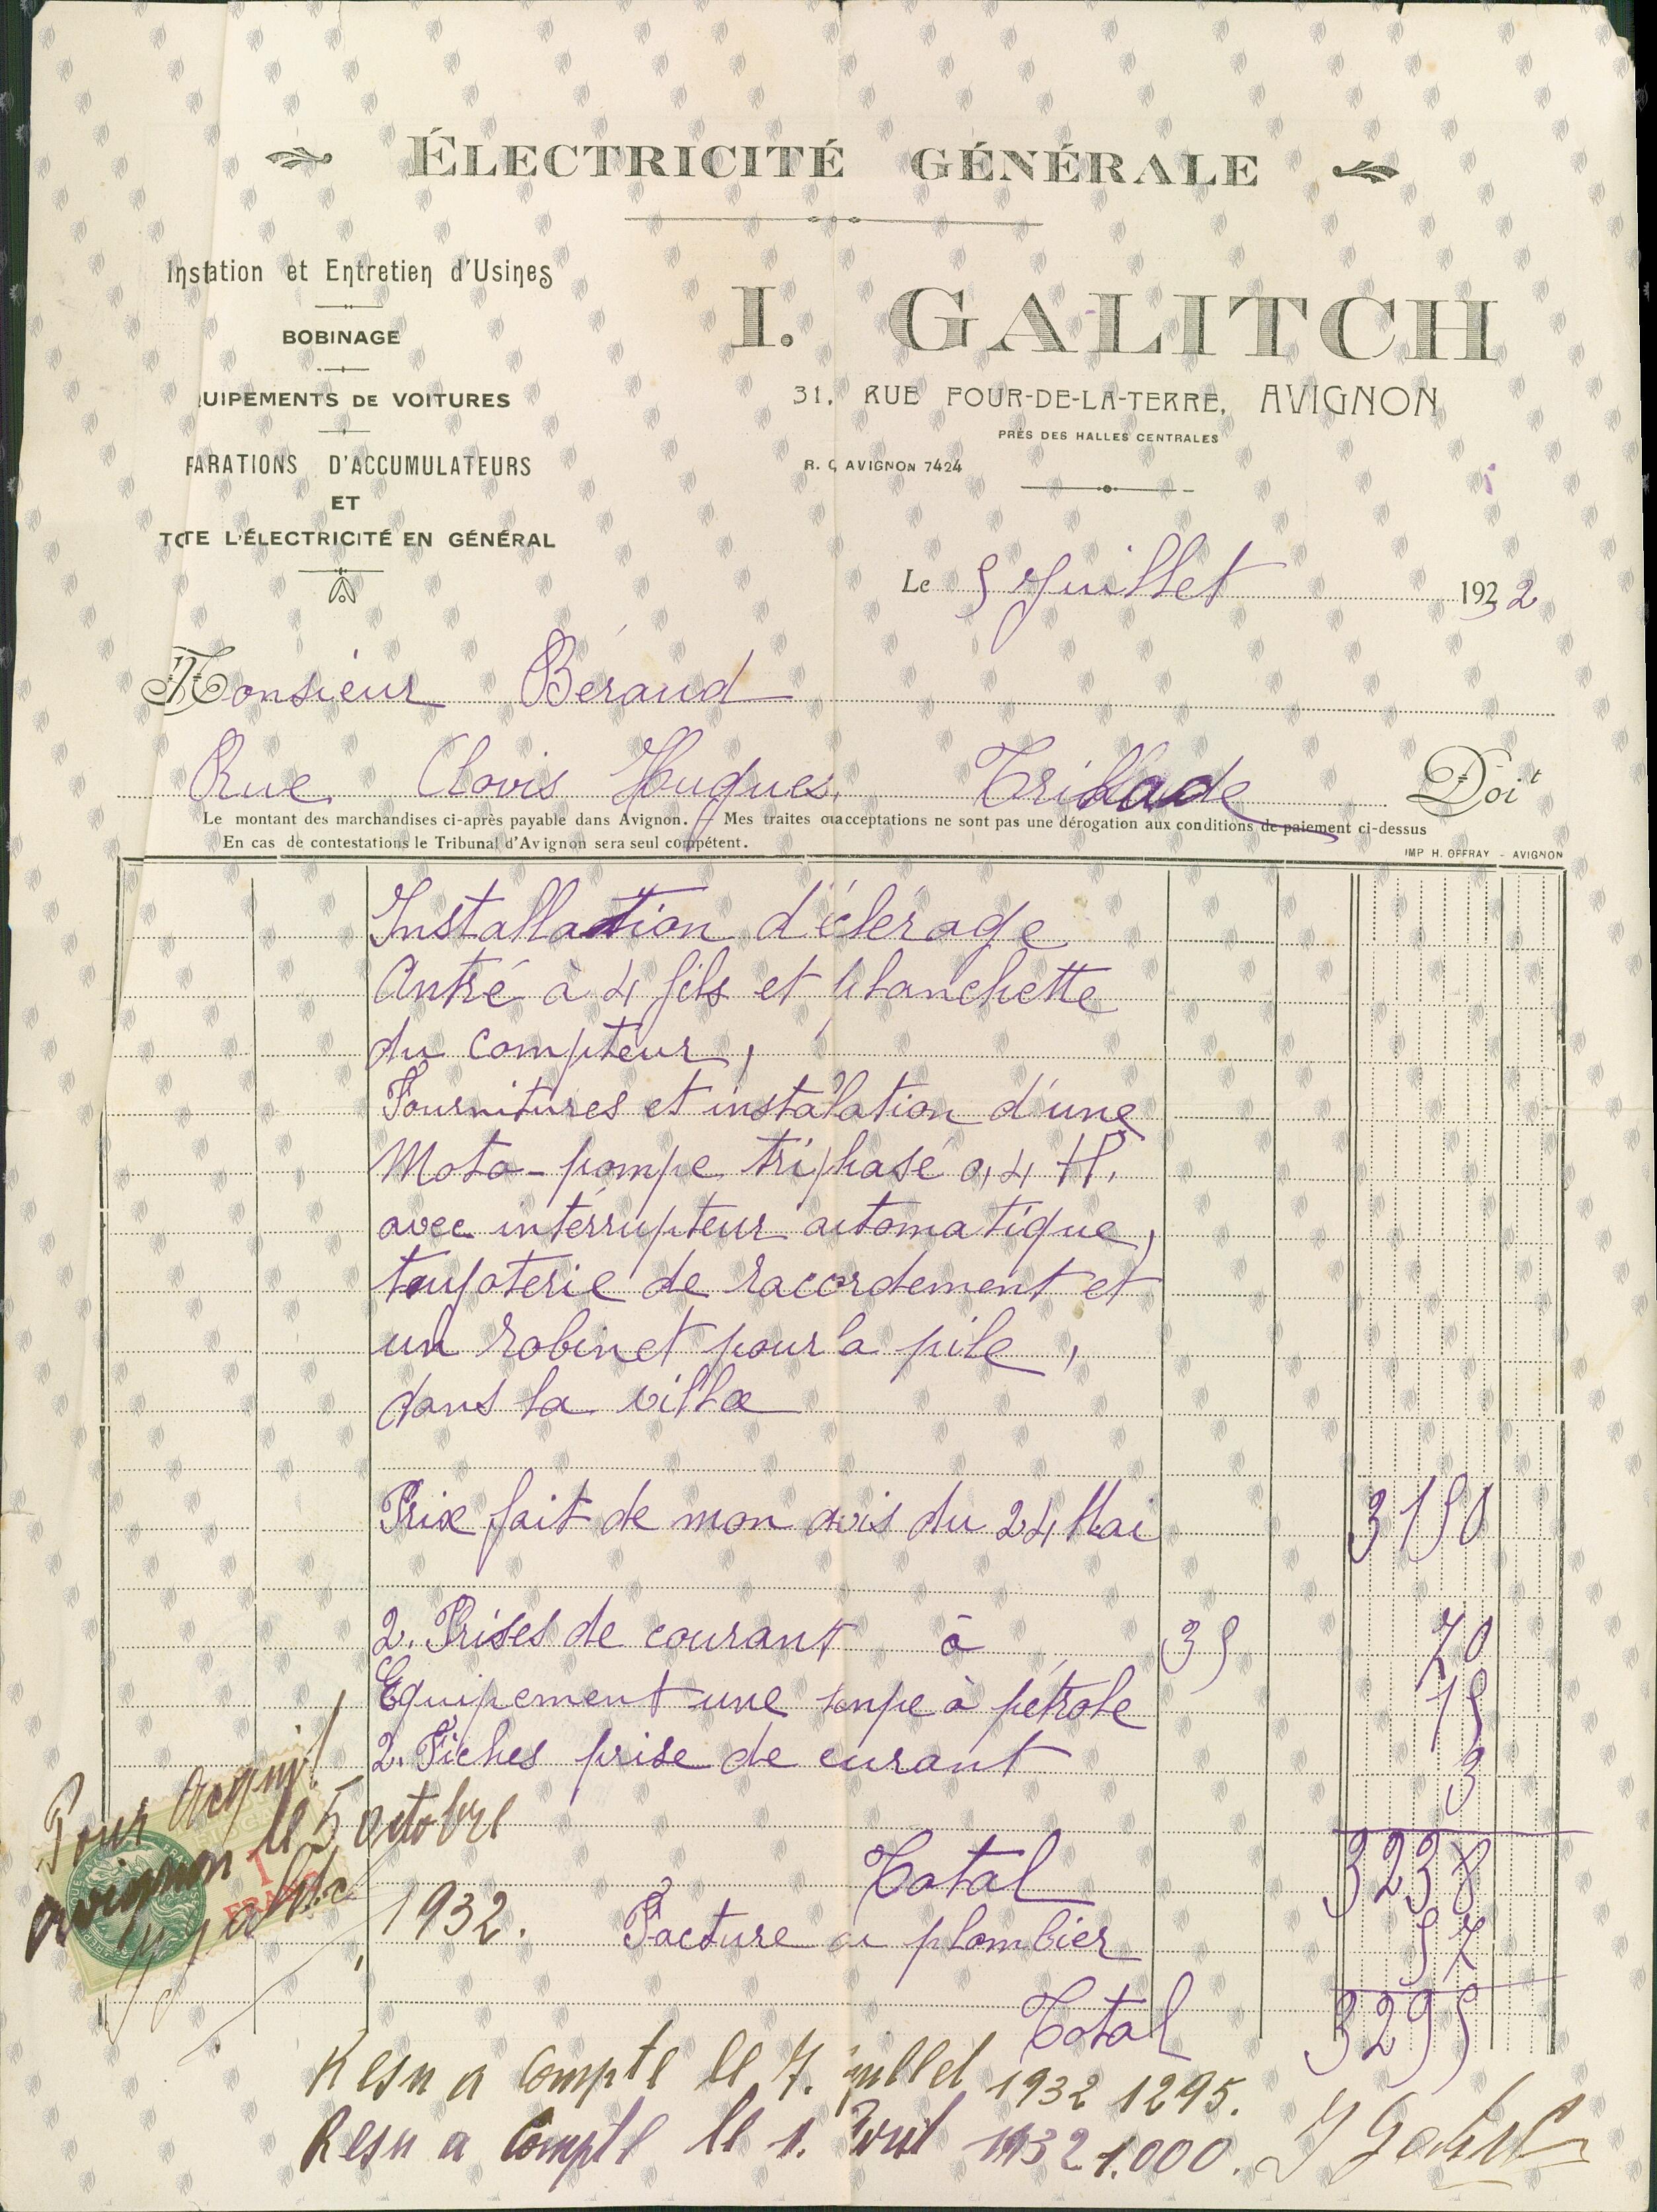 ÉLECTRICITÉ GÉNÉRALE
Instation et Entretien d'Usines
BOBINAGE
UIPEMENTS DE VOITURES
PARATIONS D'ACCUMULATEURS
ET
TOTE L'ÉLECTRICITÉ EN GÉNÉRAL
I. GALITCH
31, RUE FOUR-DE-LA-TERRE, AVIGNON
PRÈS DES HALLES CENTRALES
R. C. AVIGNON 7424
Le 5 Juillet 1932
Monsieur Béraud
Rue Clovis Hugues, Trillade Doit
Le montant des marchandises ci-après payable dans Avignon. — Mes traites ou acceptations ne sont pas une dérogation aux conditions de paiement ci-dessus
En cas de contestations le Tribunal d'Avignon sera seul compétent.
IMP H. OFFRAY - AVIGNON
Installation d'éclérage
Antré à 4 fils et planchette
du compteur,
Fournitures et instalation d'une
Moto-pompe triphasé 0,4 HP.
avec intérrupteur automatique,
tuyoterie de racordement et
un robinet pour la pile,
dans la villa
Prix fait de mon avis du 24 Mai 3150
2. Prises de courant à 35 70
Equipement une lnpe à pétrole 15
2. Fiches prise de curant 3
Total 3238
Facture au plombier 57
Total 3295
Pour acquit
avignon le 5 octobre
1932.
1
FRANC
Resu a compte le 7. juillet 1932 1295.
Resu a compte le 1. 1932 1.000.